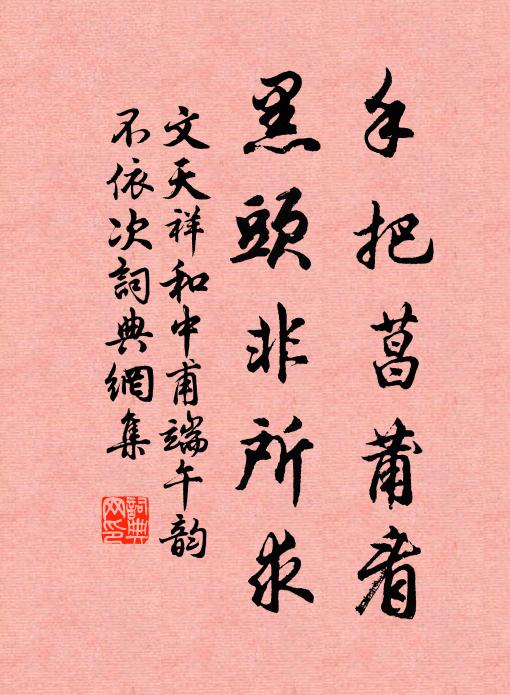 手把菖蒲看
黑頭非所求
文天祥和中甫端午韵
不依次詞典網集
詞典網印